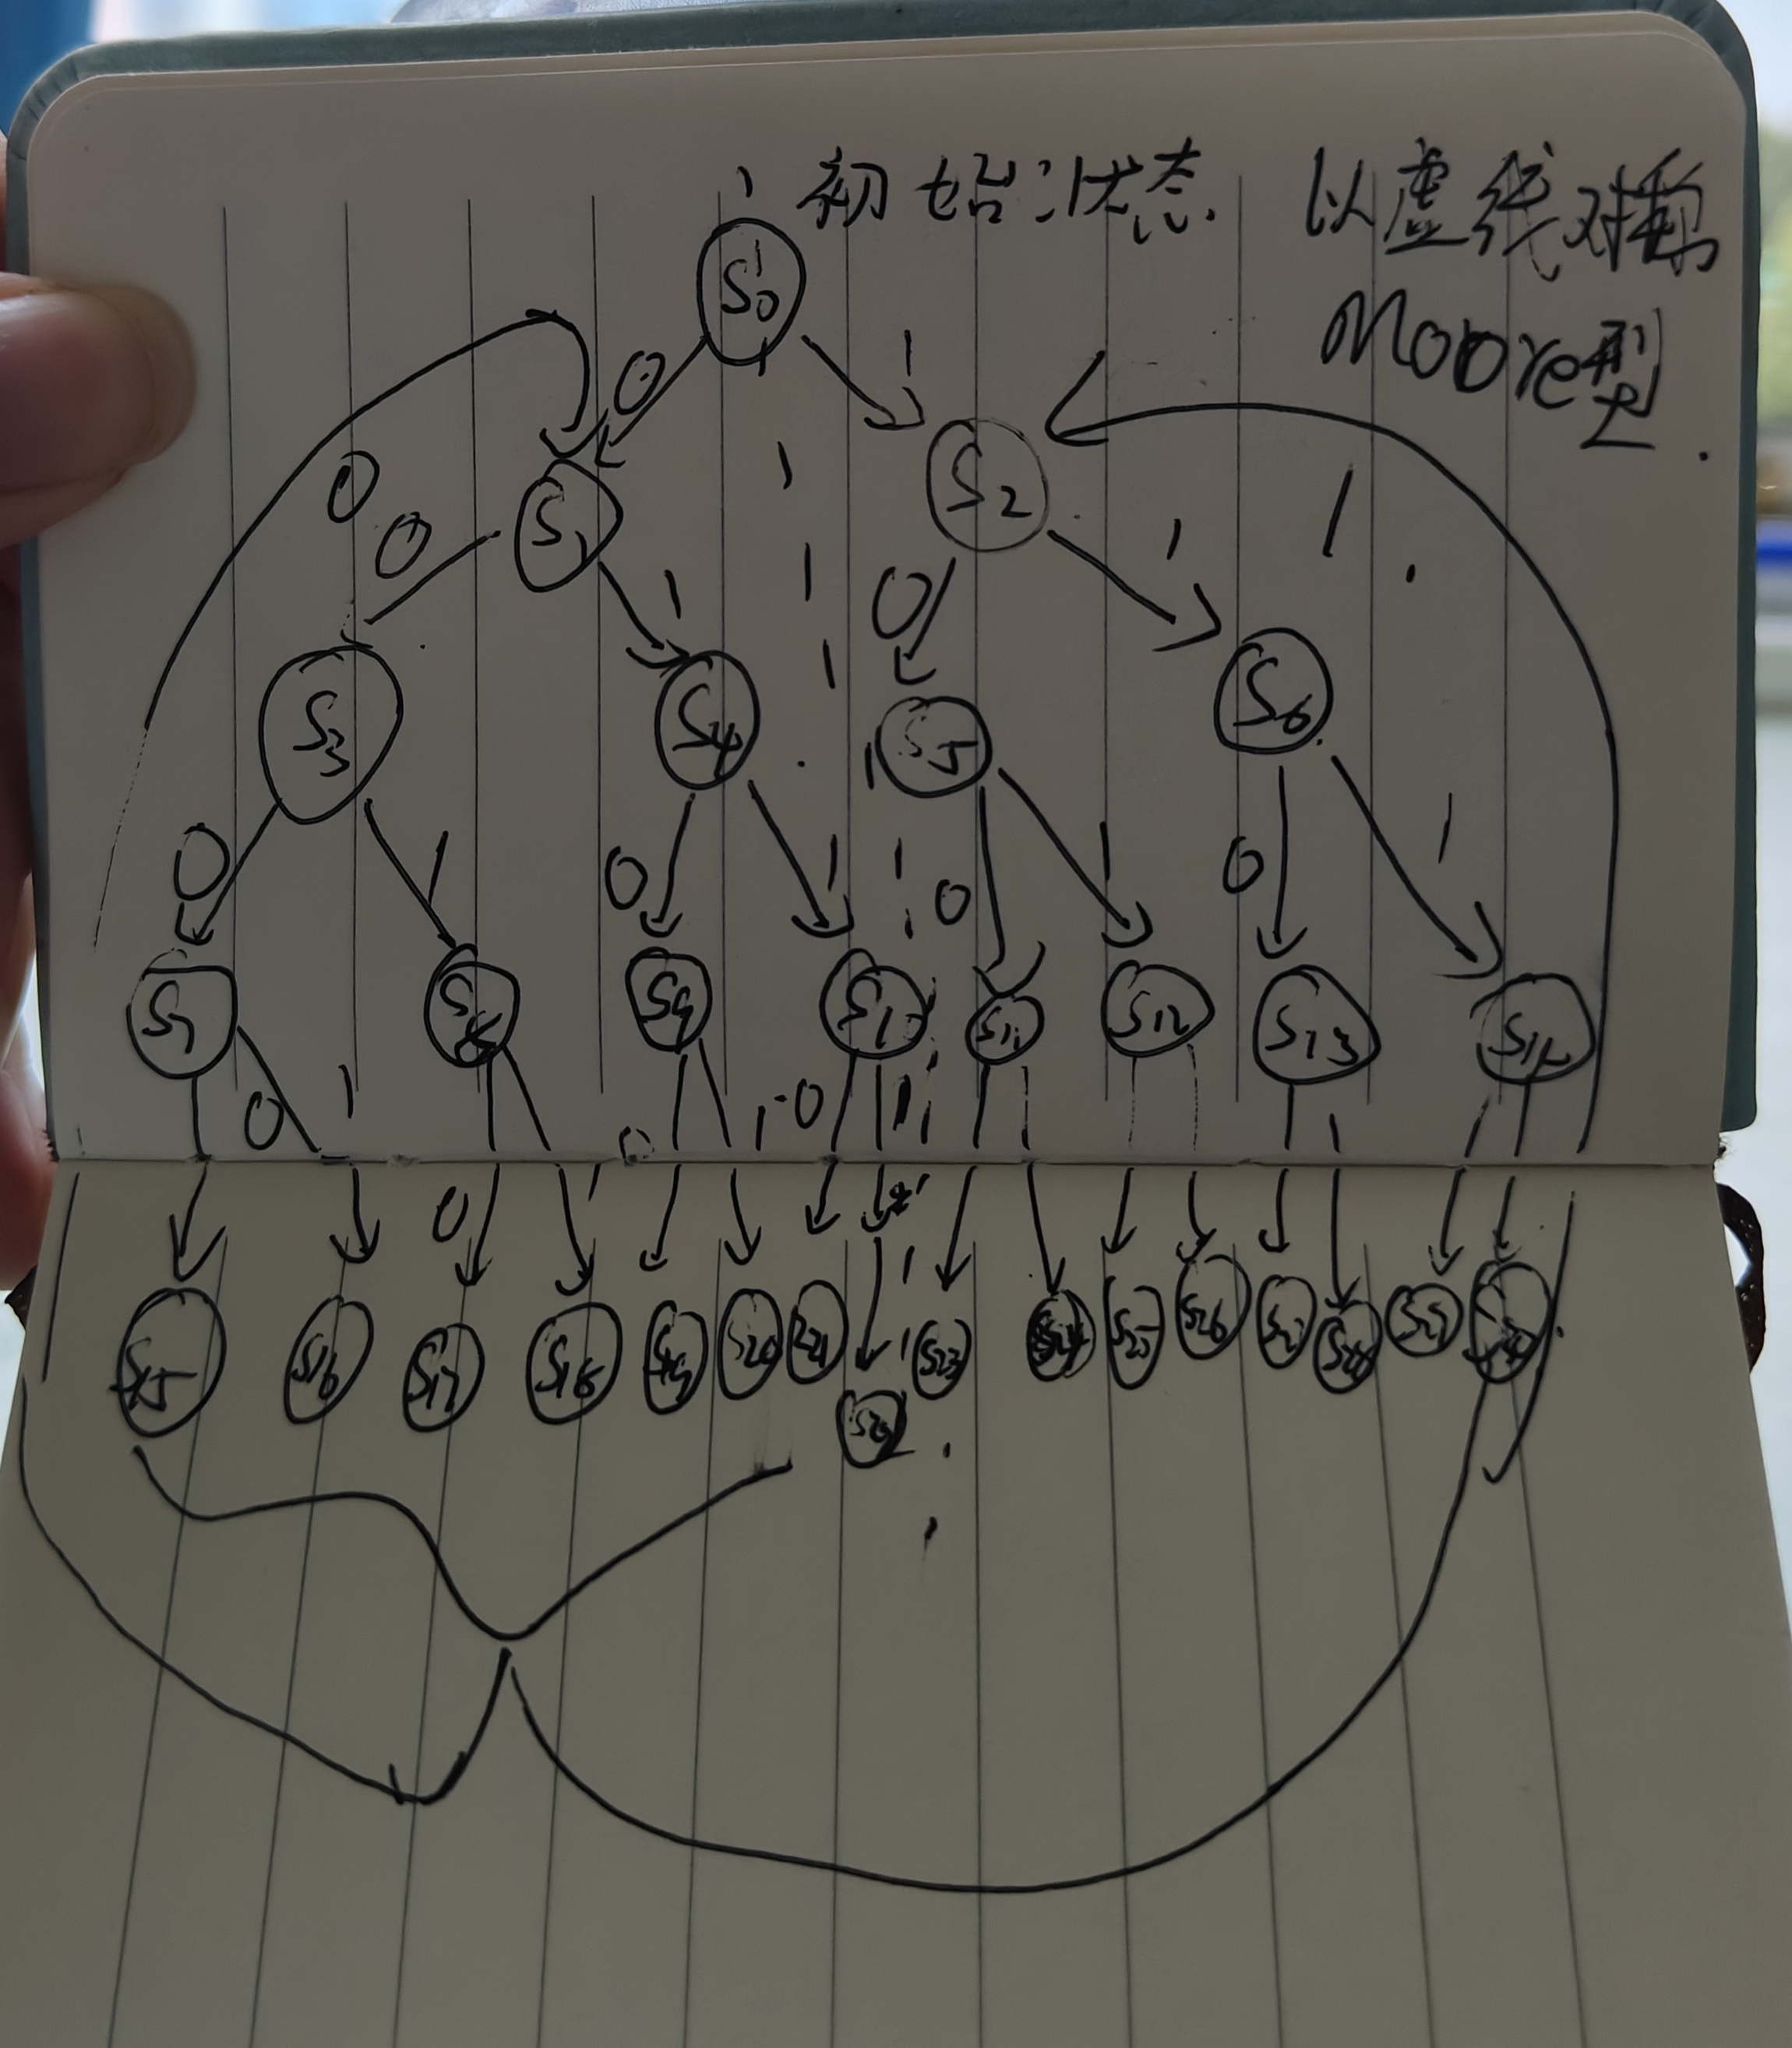 初始状态. 以虚线对称
Moore型.
S0
0 1
S1 S2
0 0 1 0 1 1
S3 S4 S5 S6
0 1 0 1 0 1 0 1
S7 S8 S9 S10 S11 S12 S13 S14
0 1 0 1
0 1
S15 S16 S17 S18 S19 S20 S21 S23 S24 S25 S26 S27 S28 S29
S22